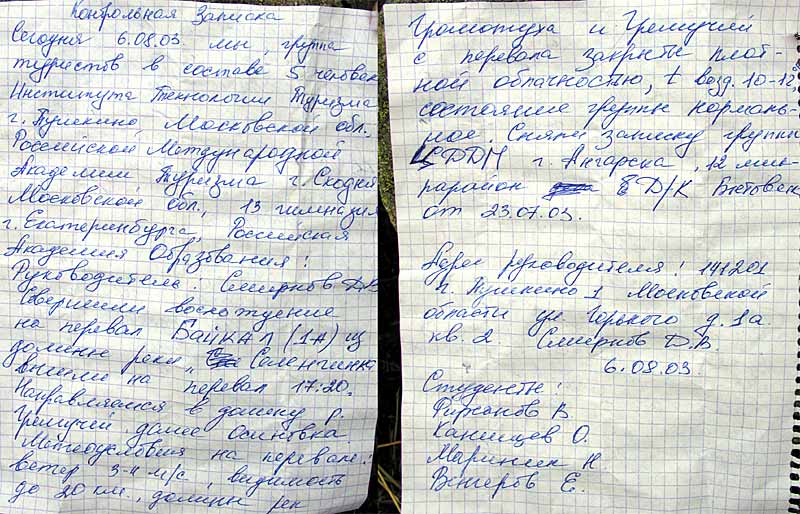 Контрольная Записка
Сегодня 6.08.03. мы, группа
туристов в составе 5 человек
Института Технологии Туризма
г. Пушкино Московской обл.
Российской Международной
Академии Туризма г. Сходня
Московской обл., 13 гимназия
г. Екатеринбурга, Российская
Академия Образования!
Руководитель: Смирнов Д.В
Совершили восхождение
на перевал Байкал (1А) из
долины реки „ Селенгинка
вышли на перевал 17:20.
Направляемся в долину р.
Гремучей далее Осиновка
Метеоусловия на перевале:
ветер 3-4 м/с, видимость
до 20 км., долины рек
Громотуха и Гремучей
с перевала закрыты плот-
ной облачностью, t возд. 10-12,
состояние группы нормаль-
ное. Сняли записку группы
ЦДДМ г. Ангарска, 12 мик-
рарайон Д/К
от 23.07.03.
Адрес руководителя: 141201
г. Пушкино 1 Московской
области ул. Горького д. 1а
кв. 2. Смирнов Д.В
6.08.03.
Студенты:
В
Канищев О.
Маринич Н
Венгеров Е.